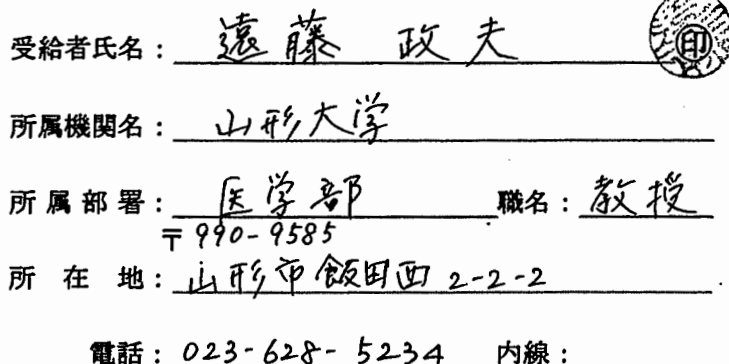 受給者氏名：遠藤 政夫 印
所属機関名：山形大学
所属部署：医学部 職名：教授
〒990-9585
所在地：山形市飯田西2-2-2
電話：023-628-5234 内線：